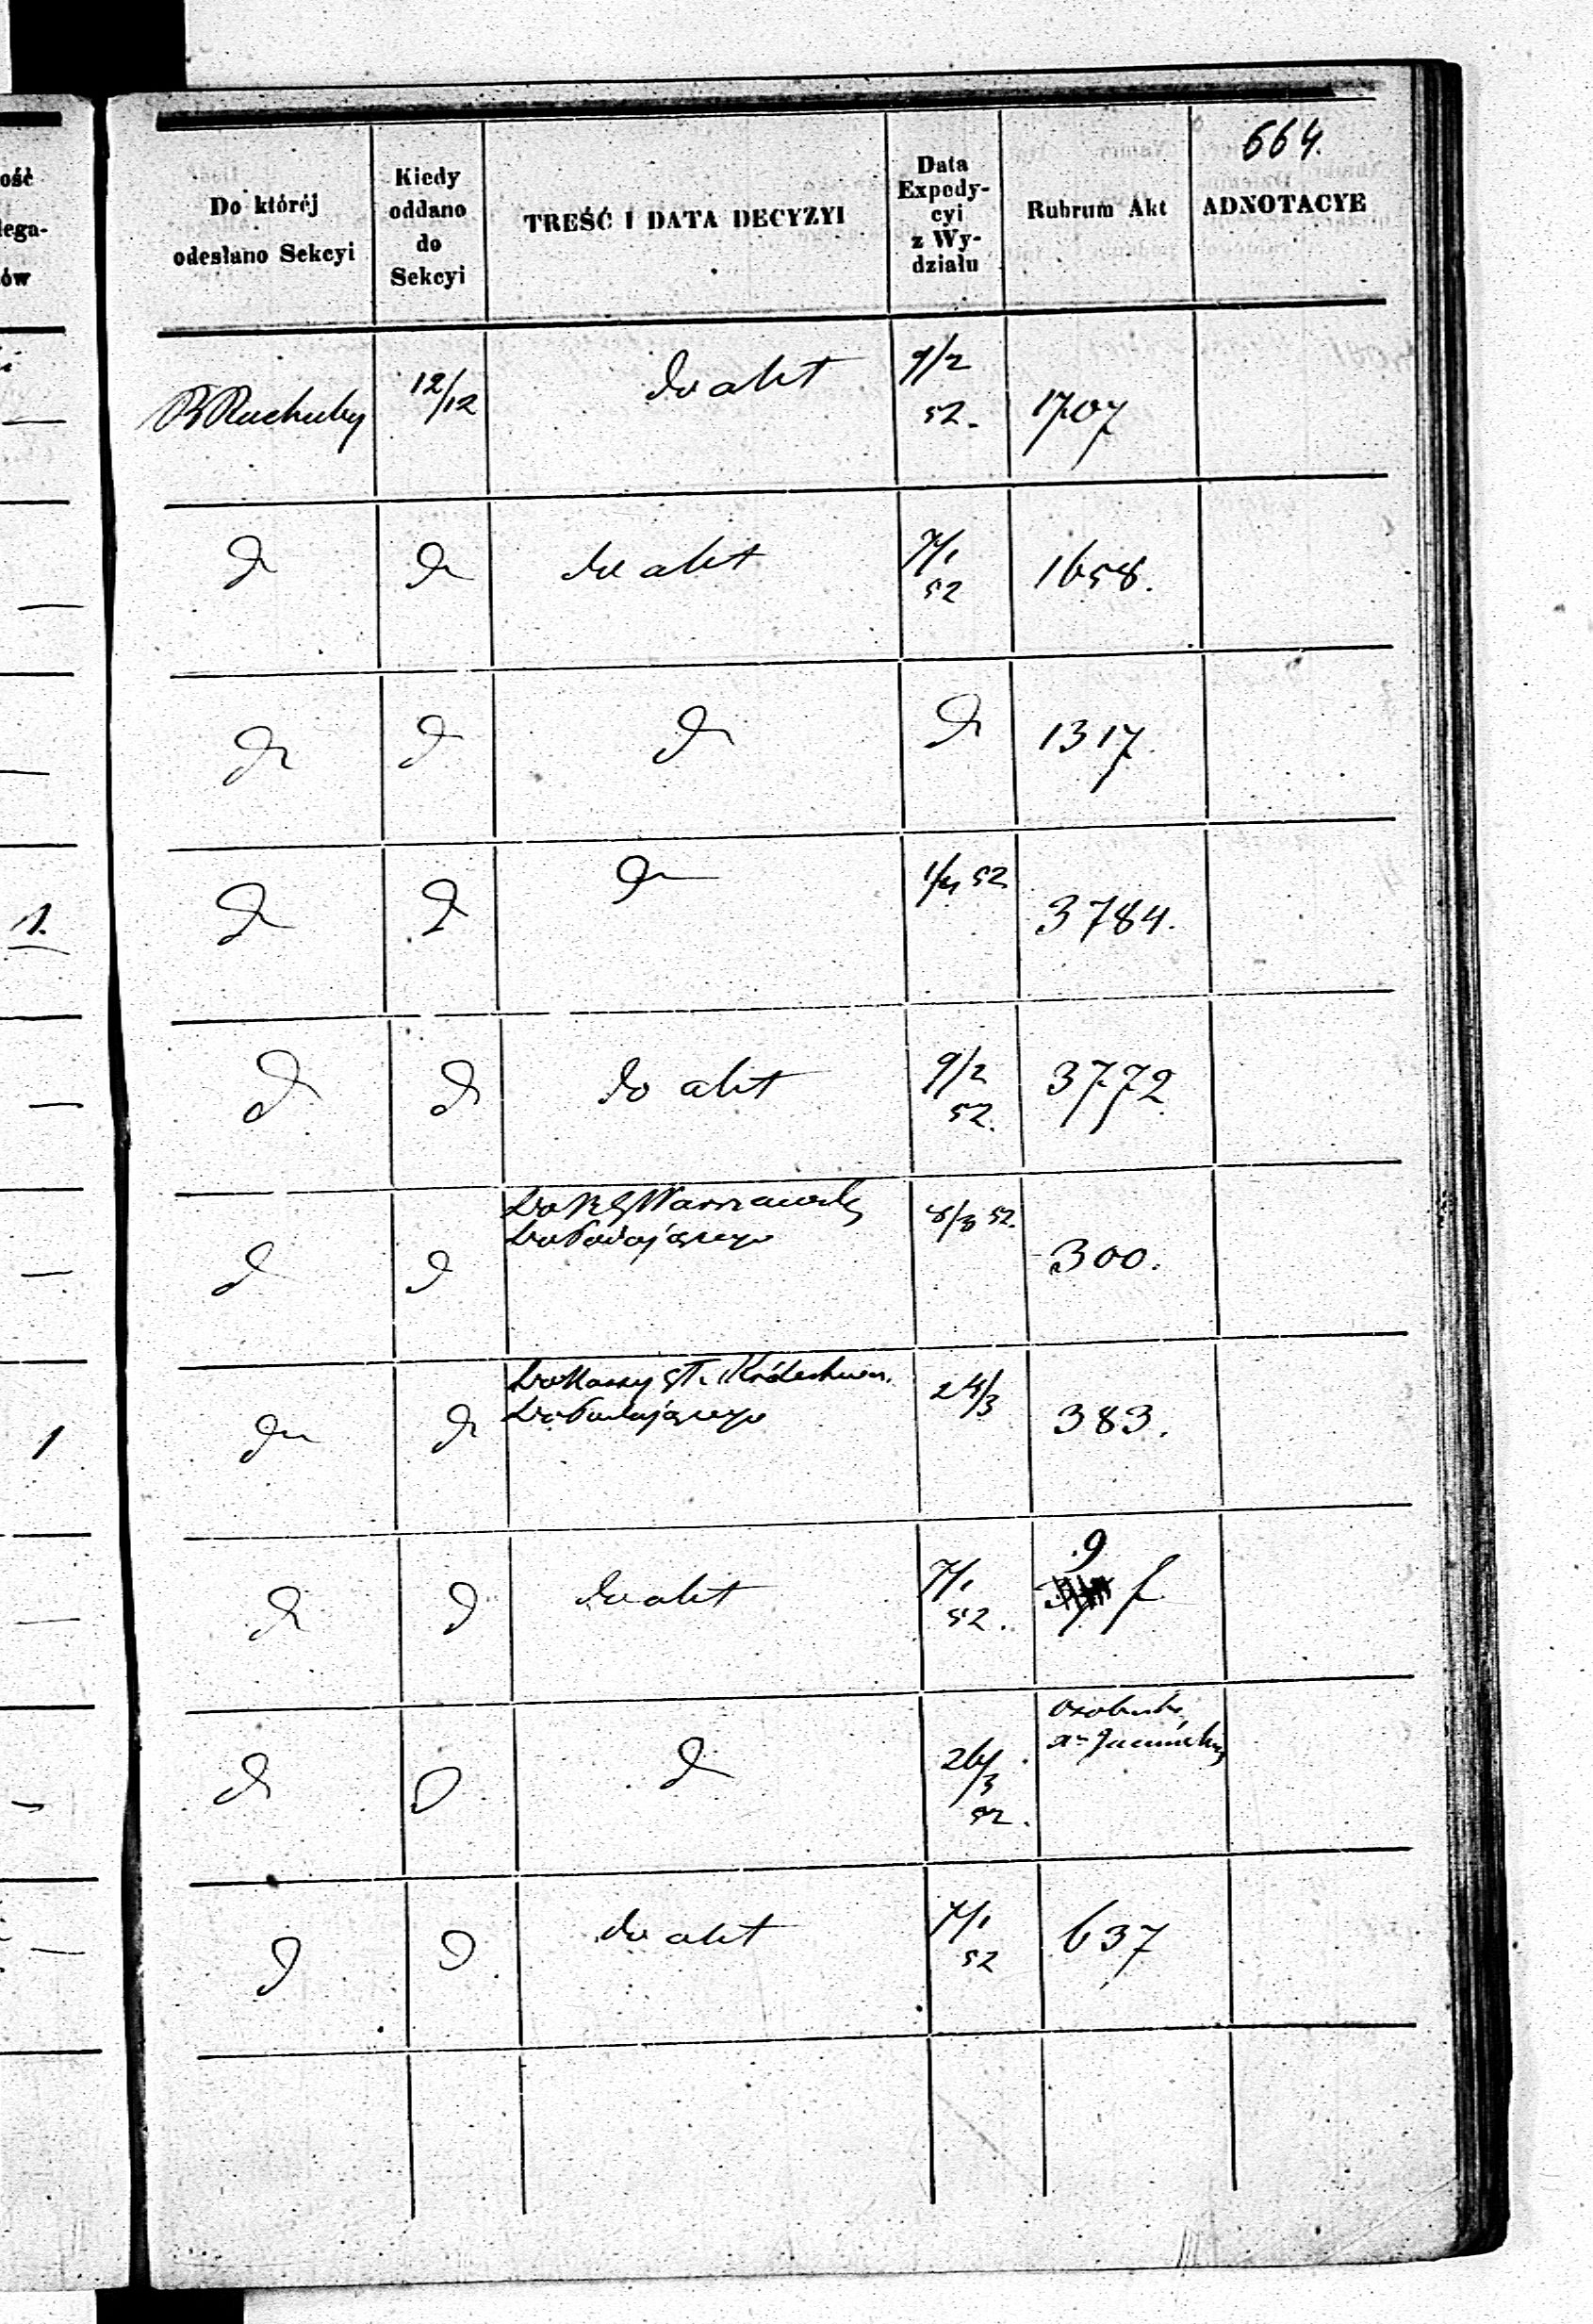 664.
ość
lega-
ów
Do któréj
odesłano Sekcyi
Kiedy
oddano
do
Sekcyi
TREŚĆ I DATA DECYZYI
Data
Expedy-
cyi
z Wy-
działu
Rubrum Akt
ADNOTACYE
12/12
do akt
9/2
52.
1707
do
do
do akt
7/1
52
1658.
do
do
do
do
1317.
1.
do
do
do
1/4 52
3784.
do
do
do akt
9/2
52.
3772
do
do
Do RG Warszawsk
Do Podającego
8/3 52.
300.
1
do
do
Do Kassy Gł. Królestwa.
Do Podającego
24/3
383.
do
do
do akt
7/1
52.
9
f
do
do
do
26/3
52.
Osobiste
do
do
do akt
7/1
52
637